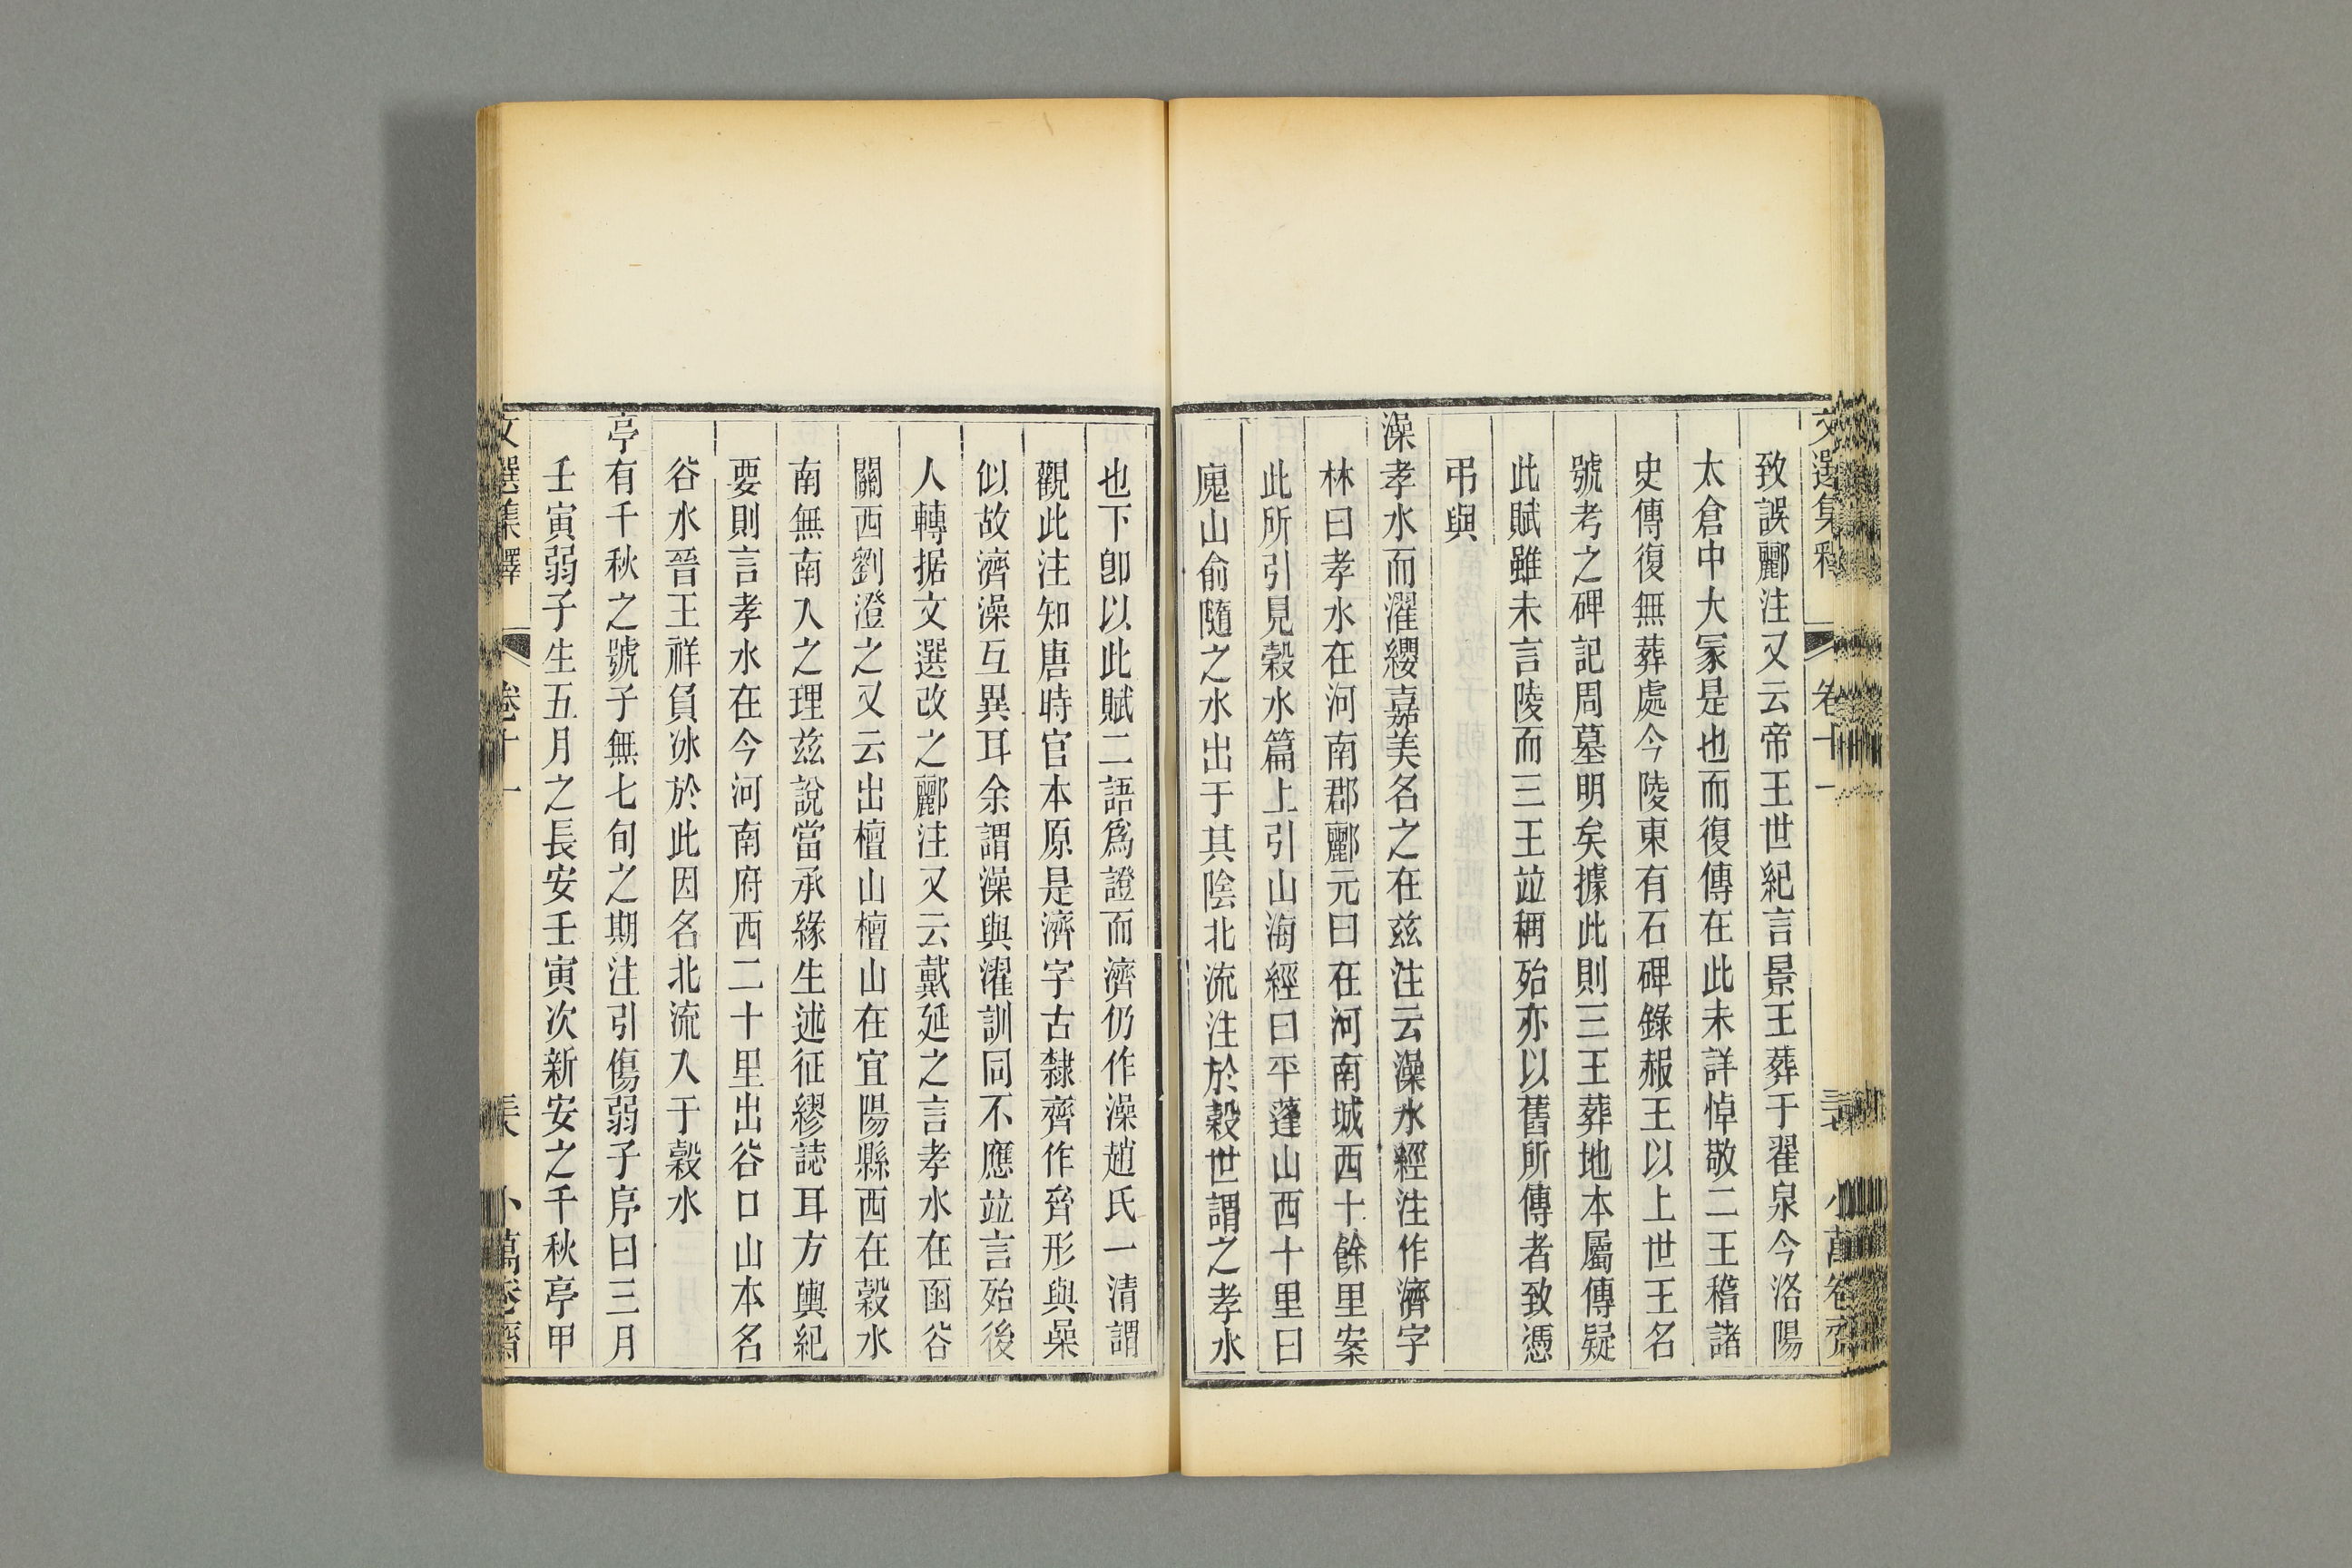 文選集釋 卷十一 小萬卷齋
致誤酈注又云帝王世紀言景王葬于翟泉今洛陽
太倉中大冢是也而復傳在此未詳悼敬二王稽諸
史傳復無葬處今陵東有石碑錄赧王以上世王名
號考之碑記周墓明矣據此則三王葬地本屬傳疑
此賦雖未言陵而三王竝稱殆亦以舊所傳者致憑
弔與
澡孝水而濯纓嘉美名之在兹注云澡水經注作濟字
林曰孝水在河南郡酈元曰在河南城西十餘里案
此所引見榖水篇上引山海經曰平蓬山西十里曰
廆山俞隨之水出于其陰北流注於榖世謂之孝水
也下卽以此賦二語爲證而濟仍作澡趙氏一清謂
觀此注知唐時官本原是濟字古隸齊作㪰形與喿
似故濟澡互異耳余謂澡與濯訓同不應竝言殆後
人轉据文選改之酈注又云戴延之言孝水在函谷
關西劉澄之又云出檀山檀山在宜陽縣西在榖水
南無南入之理兹說當承緣生述征繆誌耳方輿紀
要則言孝水在今河南府西二十里出谷口山本名
谷水晉王祥負冰於此因名北流入于榖水
亭有千秋之號子無七旬之期注引傷弱子序曰三月
壬寅弱子生五月之長安壬寅次新安之千秋亭甲
文選集釋 卷十一 小萬卷齋